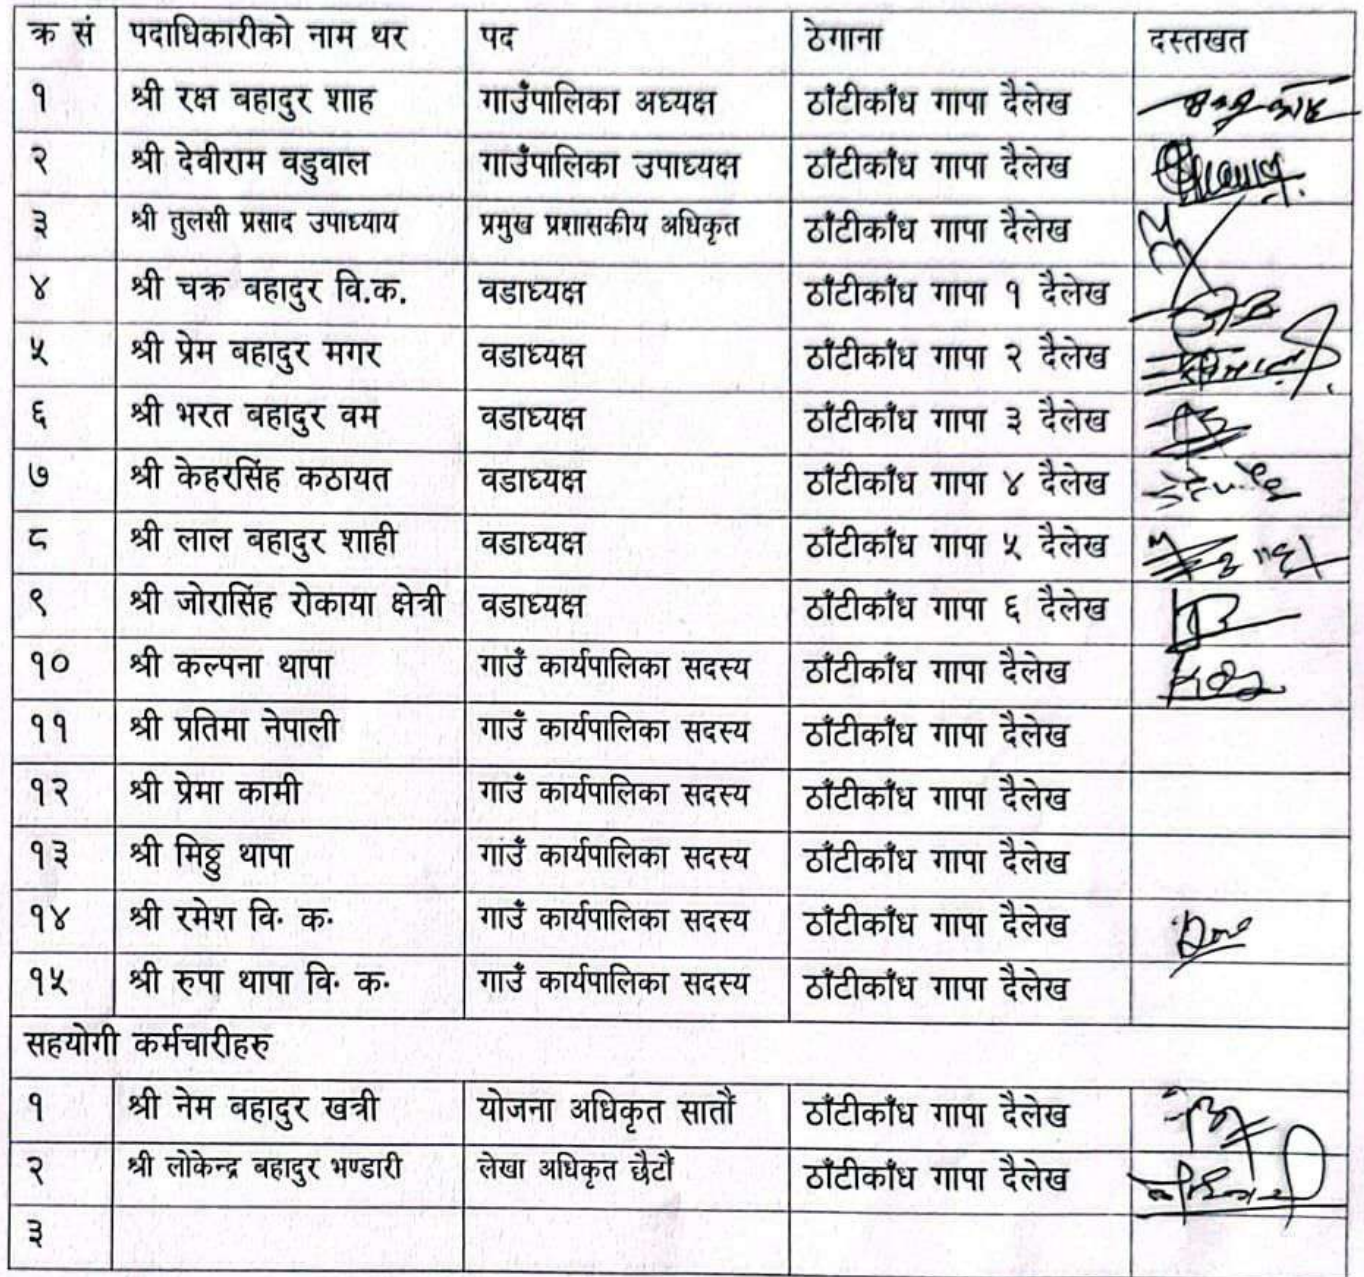 क्र सं पदाधिकारीको नाम थर पद ठेगाना दस्तखत
१ श्री रक्ष बहादुर शाह गाउँपालिका अध्यक्ष ठाँटीकाँध गापा दैलेख
२ श्री देवीराम वडुवाल गाउँपालिका उपाध्यक्ष ठाँटीकाँध गापा दैलेख
३ श्री तुलसी प्रसाद उपाध्याय प्रमुख प्रशासकीय अधिकृत ठाँटीकाँध गापा दैलेख
४ श्री चक्र बहादुर वि.क. वडाध्यक्ष ठाँटीकाँध गापा १ दैलेख
५ श्री प्रेम बहादुर मगर वडाध्यक्ष ठाँटीकाँध गापा २ दैलेख
६ श्री भरत बहादुर वम वडाध्यक्ष ठाँटीकाँध गापा ३ दैलेख
७ श्री केहरसिंह कठायत वडाध्यक्ष ठाँटीकाँध गापा ४ दैलेख
८ श्री लाल बहादुर शाही वडाध्यक्ष ठाँटीकाँध गापा ५ दैलेख
९ श्री जोरासिंह रोकाया क्षेत्री वडाध्यक्ष ठाँटीकाँध गापा ६ दैलेख
१० श्री कल्पना थापा गाउँ कार्यपालिका सदस्य ठाँटीकाँध गापा दैलेख
११ श्री प्रतिमा नेपाली गाउँ कार्यपालिका सदस्य ठाँटीकाँध गापा दैलेख
१२ श्री प्रेमा कामी गाउँ कार्यपालिका सदस्य ठाँटीकाँध गापा दैलेख
१३ श्री मिठ्ठु थापा गाउँ कार्यपालिका सदस्य ठाँटीकाँध गापा दैलेख
१४ श्री रमेश वि. क. गाउँ कार्यपालिका सदस्य ठाँटीकाँध गापा दैलेख
१५ श्री रुपा थापा वि. क. गाउँ कार्यपालिका सदस्य ठाँटीकाँध गापा दैलेख
सहयोगी कर्मचारीहरु
१ श्री नेम बहादुर खत्री योजना अधिकृत सातौं ठाँटीकाँध गापा दैलेख
२ श्री लोकेन्द्र बहादुर भण्डारी लेखा अधिकृत छैटौं ठाँटीकाँध गापा दैलेख
३